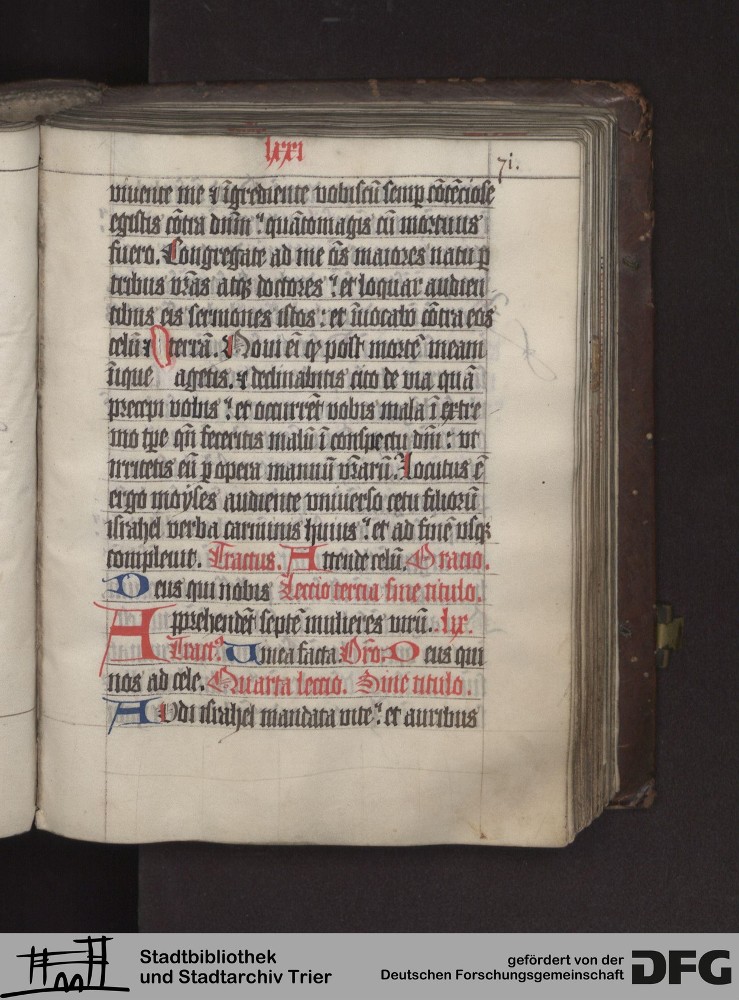 lxxi
71.
viuente me ⁊ īgrediente vobiscū semp̱ cōtēciose
egistis cōtra dn̄m ? quātomagis cū mortuus
fuero. Congregate ad me oēs maiores natu p̱
tribus vr̄as atqꝫ doctores ? et loquar audien
tibus eis sermones istos : et īuocabo cōtra eos
celū ⁊ terrā. Noui ei̅ qꝫ post mortē meam
īique agetis. ⁊ declinabitis cito de via quā
precepi vobis ? et occurrēt vobis mala ī extre
mo tp̄e qn̄ feceritis malū ī conspectu dn̄i : vt
irritetis eū p̱ opera manuū vr̄arū. Locutus ē
ergo moyses audiente vniuerso cetu filiorū
israhel verba carminis huius ? et ad finē vsqꝫ
compleuit. Tractus. Attende celū. Oracio.
Deus qui nobis Leccio tercia sine titulo.
Apprehendēt septē mulieres virū. lix.
Tract9. Uinea facta. Or̄o. Deus qui
nos ad cele. Quarta leccio. Sine titulo.
AUdi israhel mandata vite ? et auribus
Stadtbibliothek
und Stadtarchiv Trier
gefördert von der
Deutschen Forschungsgemeinschaft
DFG